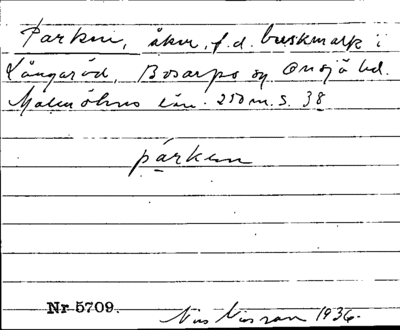 Parken, åker, f.d. buskmark i
Långaröd, Bosarps sn Onsjö hd.
Malmöhus län. 250 m. S. 38
parken
Nr 5709.
Nils Nilsson 1936.